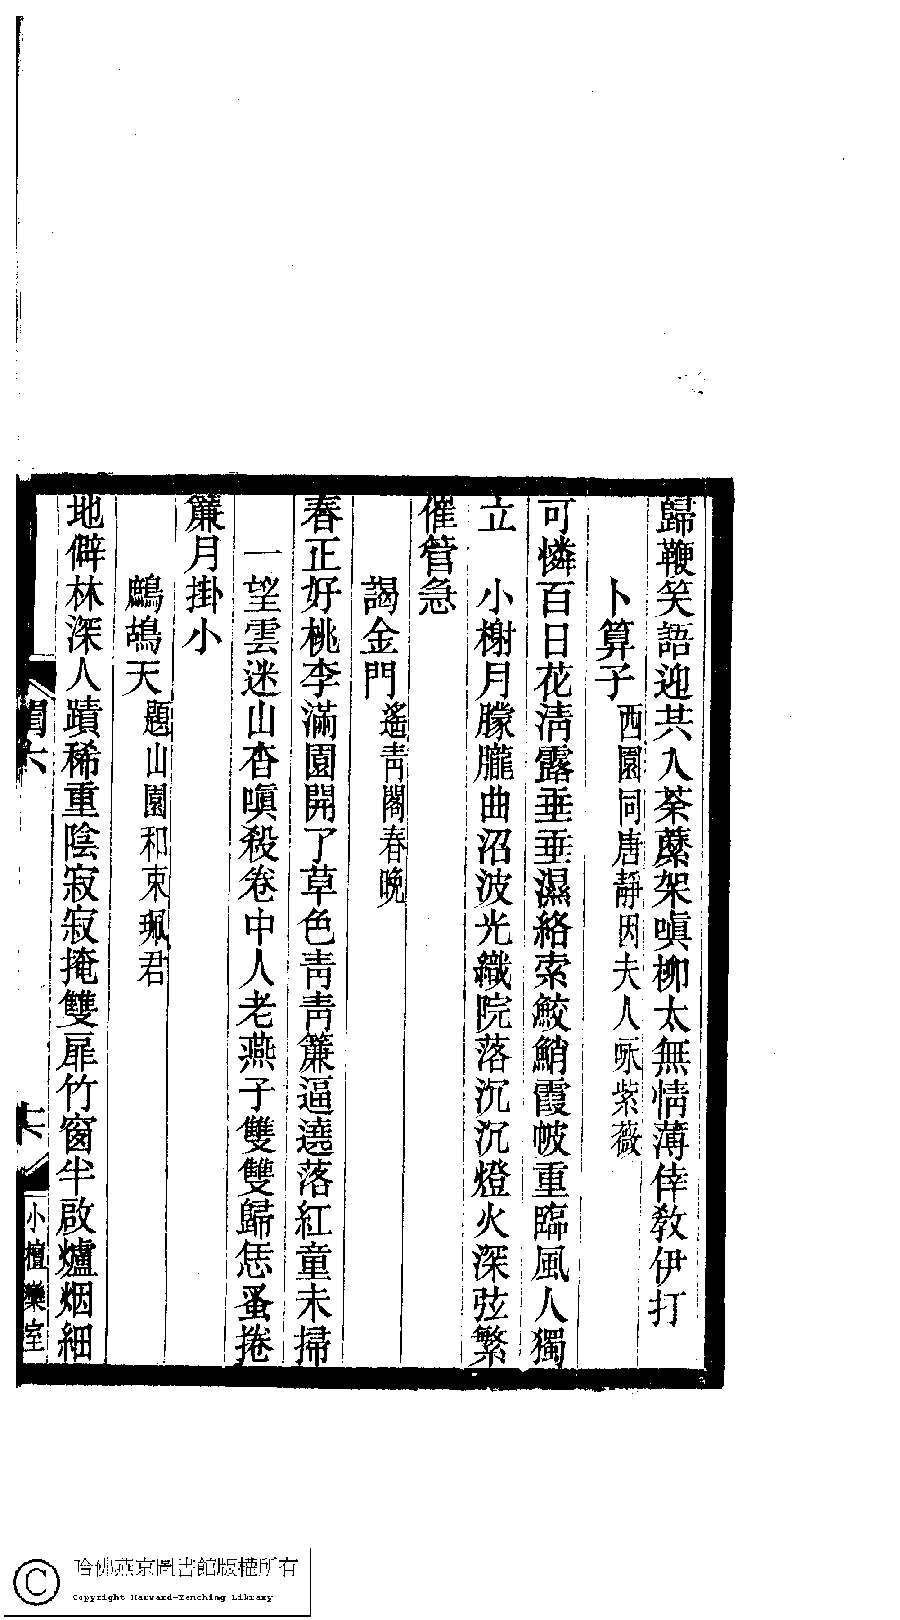 歸鞭笑語迎共入荼蘼架嗔柳太無情薄倖教伊打
卜算子西園同唐靜因夫人詠紫薇
可憐百日花淸露垂垂濕絡索鮫鮹霞帔重臨風人獨
立　小榭月朦朧曲沼波光織院落沉沉燈火深弦繁
催管急
謁金門遙靑閣春晚
春正好桃李滿園開了草色靑靑簾逼遶落紅童未掃
一望雲迷山杳嗔殺卷中人老燕子雙雙歸恁蚤捲
簾月掛小
鷓鴣天題山園和束珮君
地僻林深人蹟稀重陰寂寂掩雙扉竹窗半啟爐烟細
小檀欒室
哈佛燕京圖書館版權所有
Copyright Harvard-Yenching Library